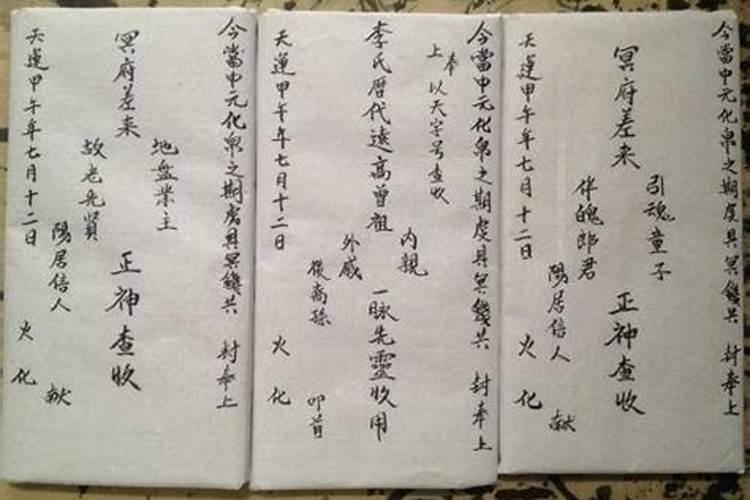 今當中元化帛之期虔具冥錢共 封奉上
冥府差来
引魂童子
伴魄郎君
正神查收
陽居信人 献
天運甲午年七月十二日 火化
今當中元化帛之期虔具冥錢共 封奉上
奉
上 以天字号查收
李氏歷代遠高曾祖
內親
外戚
一脉先靈收用
後裔孫 叩首
天運甲午年七月十二日 火化
今當中元化帛之期虔具冥錢共 封奉上
地盤業主
冥府差来
故老先賢
正神查收
陽居信人 献
天運甲午年七月十二日 火化